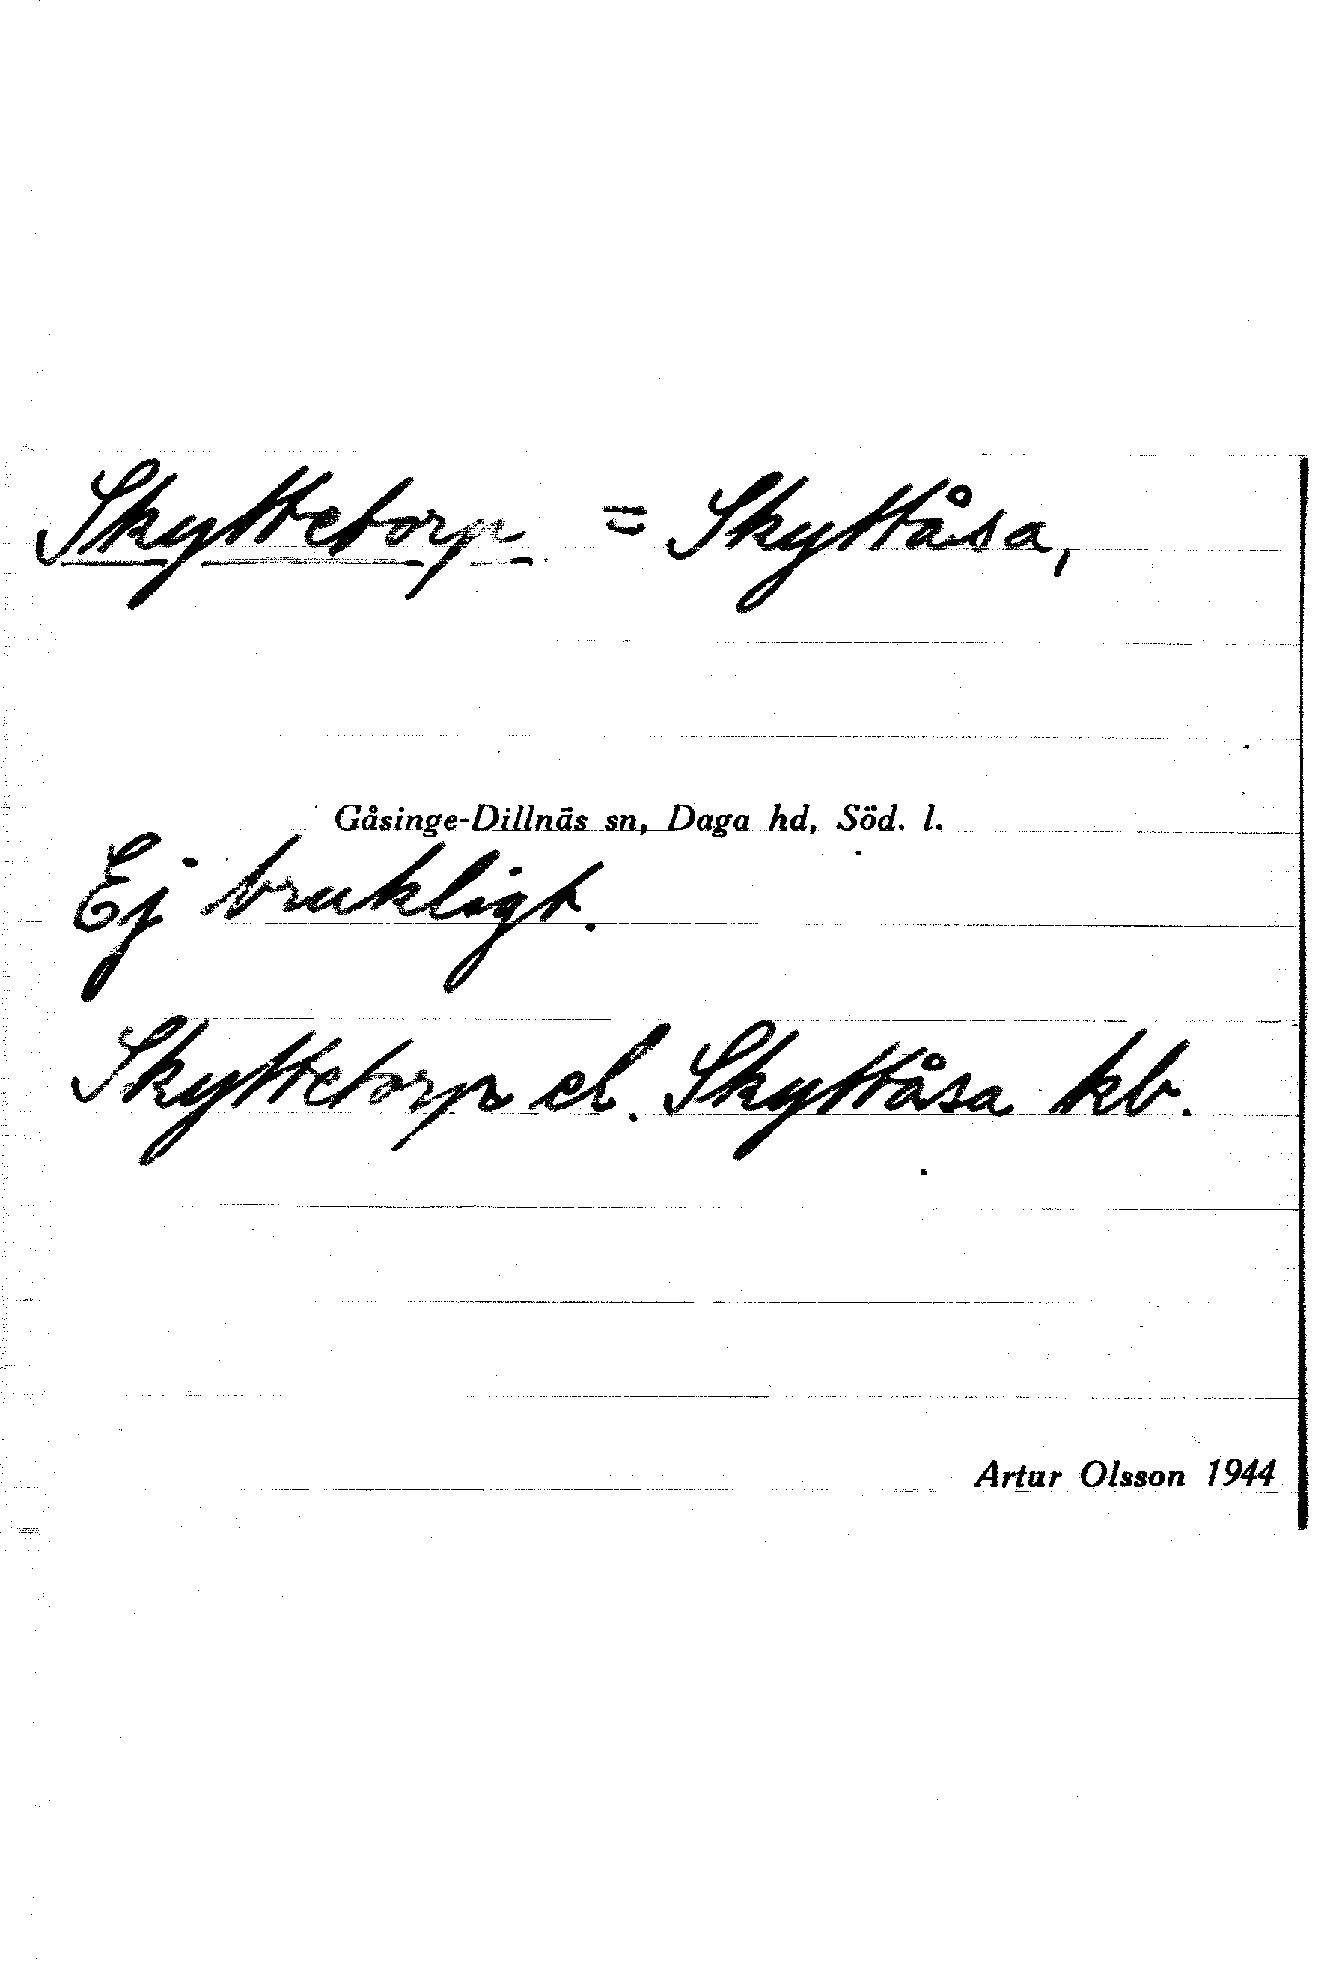 Skyttetorp = Skyttåsa,
Gåsinge-Dillnäs sn, Daga hd, Söd. l.
Ej brukligt.
Skyttetorp el. Skyttåsa kb.
Artur Olsson 1944